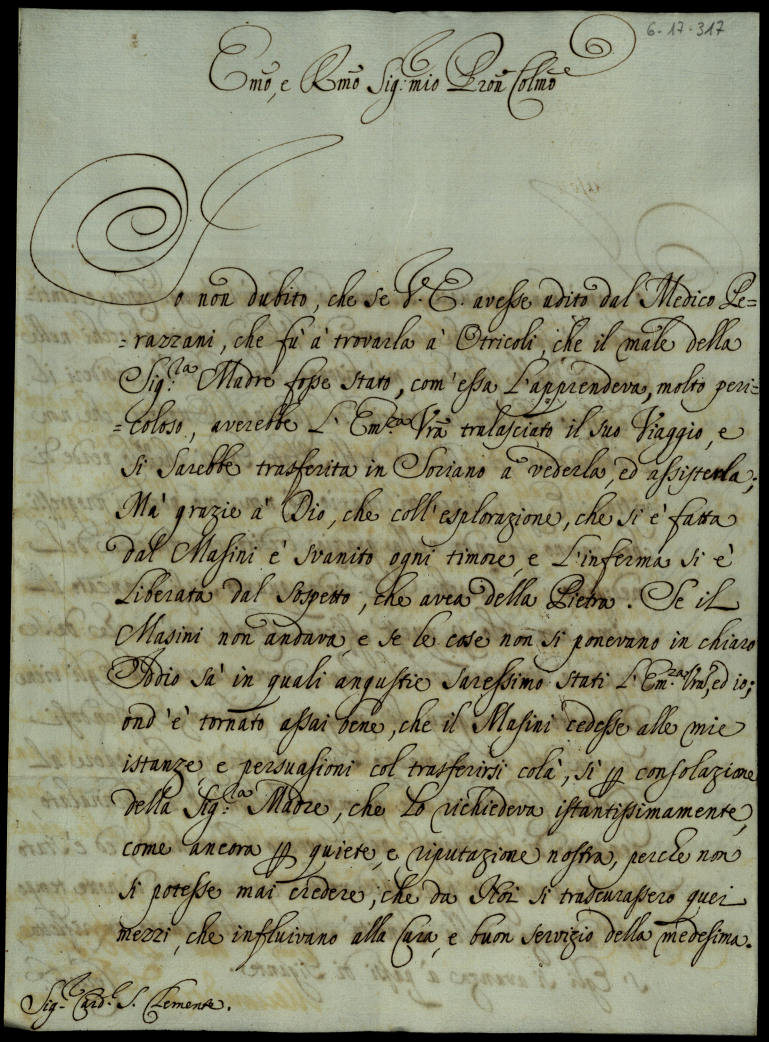 6-17-317
Emo, e Rmo Sig: mio Pron Colmo
Io non dubito, che se V. E. avesse udito dal Medico Pe=
=razzani, che fù à trovarla à Otricoli, che il male della
Sig.ra Madre fosse stato, com'essa l'apprendeva, molto peri=
=coloso, averebbe L'Em.za Vra tralasciato il suo Viaggio, e
si sarebbe trasferita in Soriano à vederla, ed assisterla;
Mà grazie à Dio, che coll'esplorazione, che si è fatta
dal Masini è svanito ogni timore, e L'inferma si è
Liberata dal sospetto, che avea della Pietra. Se il
Masini non andava, e se le cose non si ponevano in chiaro
Iddio sà in quali angustie saressimo stati L'Em.za Vra, ed io;
ond'è tornato assai bene, che il Masini cedesse alle mie
istanze, e persuasioni col trasferirsi colà, sì p consolazione
della Sig.ra Madre, che Lo richiedeva istantissimamente,
come ancora p quiete, e riputazione nostra, perche non
si potesse mai credere, che da Noi si trascurassero quei
mezzi, che influivano alla Cura, e buon servizio della medesima.
Sig.r Card.l S. Clemente.